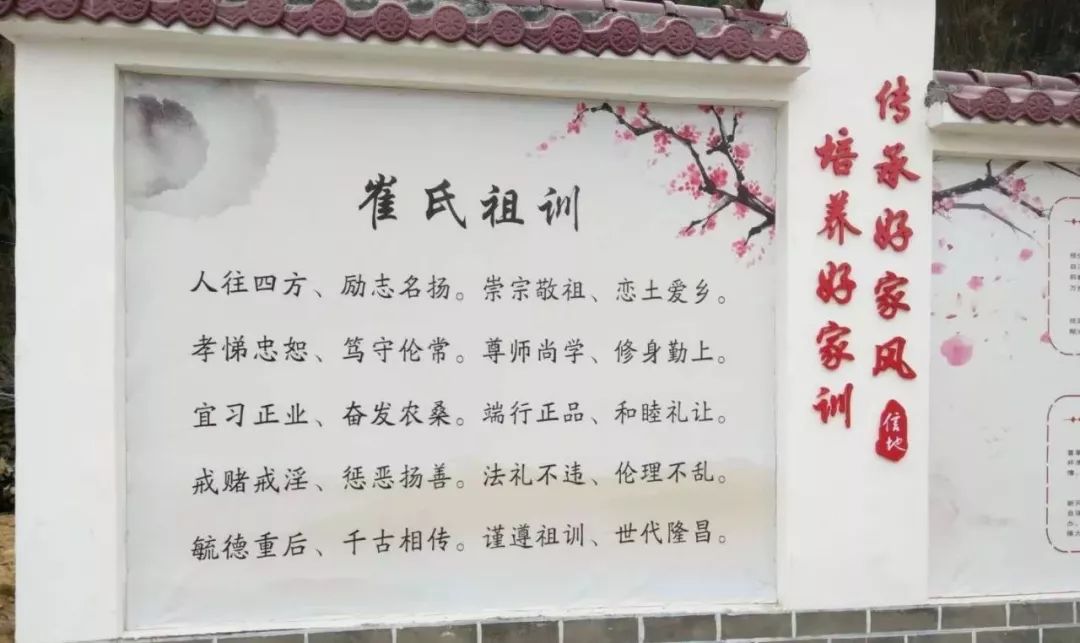 崔氏祖训
人往四方、励志名扬。崇宗敬祖、恋土爱乡。
孝悌忠恕、笃守伦常。尊师尚学、修身勤上。
宜习正业、奋发农桑。端行正品、和睦礼让。
戒赌戒淫、惩恶扬善。法礼不违、伦理不乱。
毓德重后、千古相传。谨遵祖训、世代隆昌。
传承好家风
培养好家训
信地